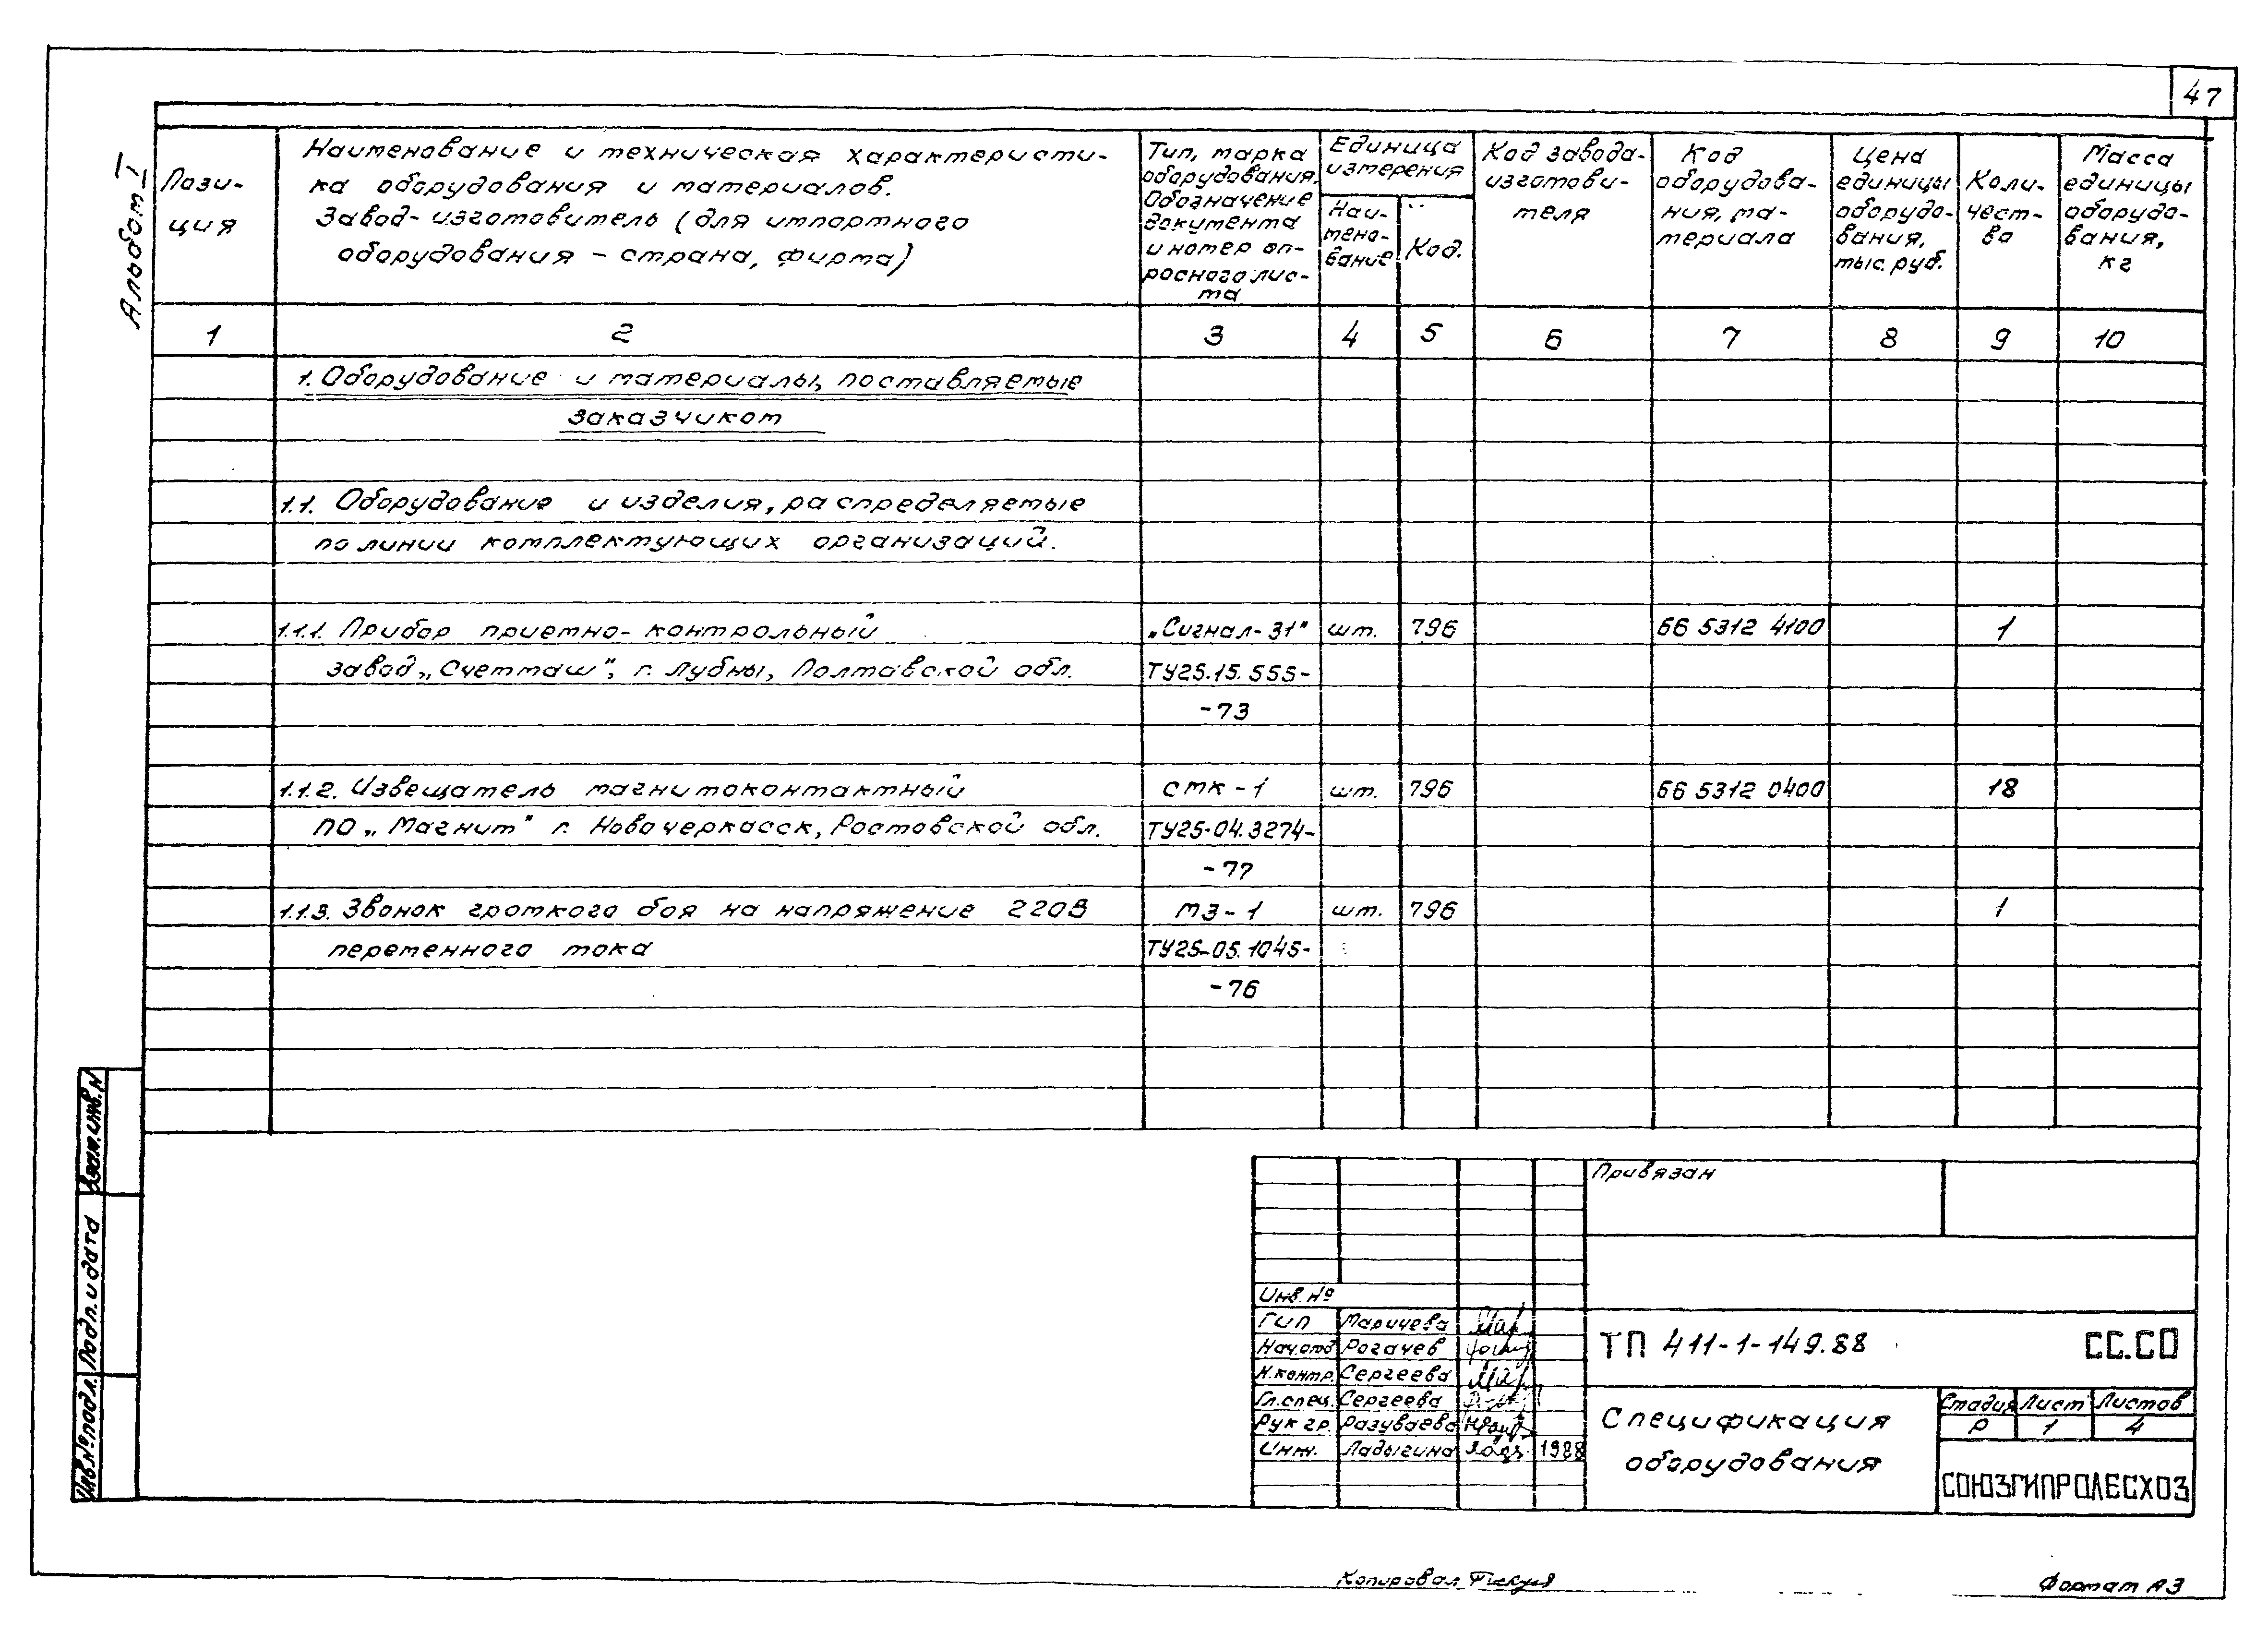 47
Альбом I
Пози-
ция
Наименование и техническая характеристи-
ка оборудования и материалов.
Завод-изготовитель (для импортного
оборудования – страна, фирма)
Тип, марка
оборудования.
Обозначение
документа
и номер оп-
росного лис-
та
Единица
измерения
Наи-
мено-
вание
Код.
Код завода-
изготови-
теля
Код
оборудова-
ния, ма-
териала
Цена
единицы
оборудо-
вания,
тыс. руб.
Коли-
чест-
во
Масса
единицы
оборудо-
вания,
кг
1 2 3 4 5 6 7 8 9 10
1. Оборудование и материалы, поставляемые
заказчиком
1.1. Оборудование и изделия, распределяемые
по линии комплектующих организаций.
1.1.1. Прибор приемно-контрольный „Сигнал-31" шт. 796 66 5312 4100 1
завод „Счетмаш", г. Лубны, Полтавской обл. ТУ25.15.555-
-73
1.1.2. Извещатель магнитоконтактный СМК-1 шт. 796 66 5312 0400 18
ПО „Магнит" г. Новочеркасск, Ростовской обл. ТУ25-04.3274-
-77
1.1.3. Звонок громкого боя на напряжение 220В МЗ-1 шт. 796 1
переменного тока ТУ25-05.1045-
-76
Взам.инв.N
Подп. и дата
Инв.№ подл.
Привязан
Инв. №
ГИП Маричева
Нач.отд Рогачев
Н.контр. Сергеева
Гл.спец. Сергеева
Рук гр. Разуваева
Инж. Ладыгина 1988
ТП 411-1-149.88 СС.СО
Спецификация
оборудования
Стадия Лист Листов
Р 1 4
СОЮЗГИПРОЛЕСХОЗ
Копировал
Формат А3